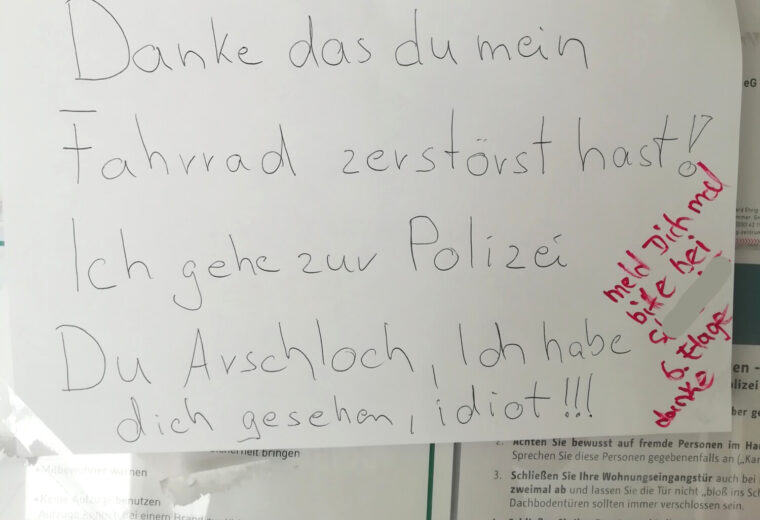 Danke das du mein
Fahrrad zerstörst hast!
Ich gehe zur Polizei
Du Arschloch, Ich habe
dich gesehen, idiot!!!
meld Dich mal
bite bei
6. Etage
danke
eG
en -
olizei
ber ge
2. Achten Sie bewusst auf fremde Personen im Hau
Sprechen Sie diese Personen gegebenenfalls an („Kan
3. Schließen Sie Ihre Wohnungseingangstür auch bei
zweimal ab und lassen Sie die Tür nicht „bloß ins Sch
Dachbodentüren sollten immer verschlossen sein.
erheit bringen
•Mitbewohner warnen
•Keine Aufzüge benutzen